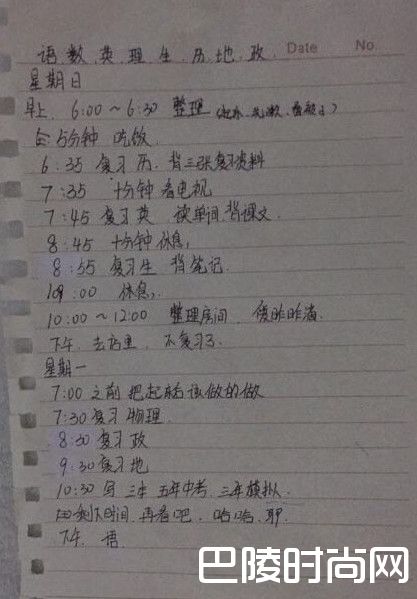 语.数.英.理.生.历.地.政. Date No.
星期日
早上 6:00～6:30 整理
5分钟 吃饭
6:35 复习历.背三张复习资料
7:35 十分钟看电视
7:45 复习英 读单词.背课文
8:45 十分钟休息,
8:55 复习生 背笔记.
:00 休息,
10:00～12:00 整理房间.
下午.去店里.不复习了.
星期一
7:00之前把起床后该做的做
7:30复习物理
8:30复习政
9:30复习地
10:30写三本五年中考.三年模拟.
剩下时间.再看吧.哈哈.耶
下午.语.
巴陵时尚网